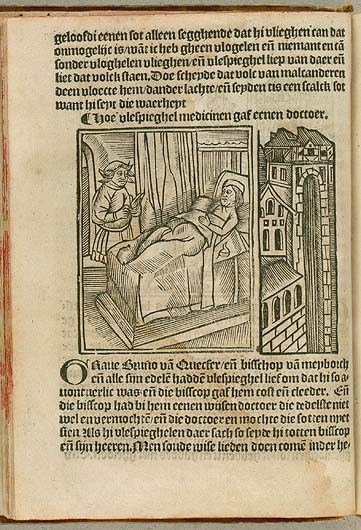 geloofdi eenen sot alleen segghende dat hi vlieghen can dat
onmogelijc is/wāt ic heb gheen vlogelen eñ niemant en cā
sonder vloghelen vlieghen/eñ vlespieghel liep van daer eñ
liet dat volck staen. Doe scheyde dat volc van malcanderen
deen vloecte hem/dander lachte/eñ seyden tis een scalck sot
want hi seyt die waerheyt
¶ Hoe vlespieghel medicinen gaf eenen doctoer.
ONaue Bruno vā Quecfer/eñ bisschop vā meyborch
eñ alle sijn edelē haddē vlespieghel lief om dat hi so a/
uontuerlic was eñ die biscop gaf hem cost eñ cleeder. Eñ
die biscop had bi hem eenen wijsen doctoer die tedelste niet
wel en vermochtē/eñ die doctoer en mochte die sotten niet
sien Als hi vlespieghelen daer sach so seyde hi totten bisscop
eñ sijn heeren. Men soude wise lieden doen comē inder he/